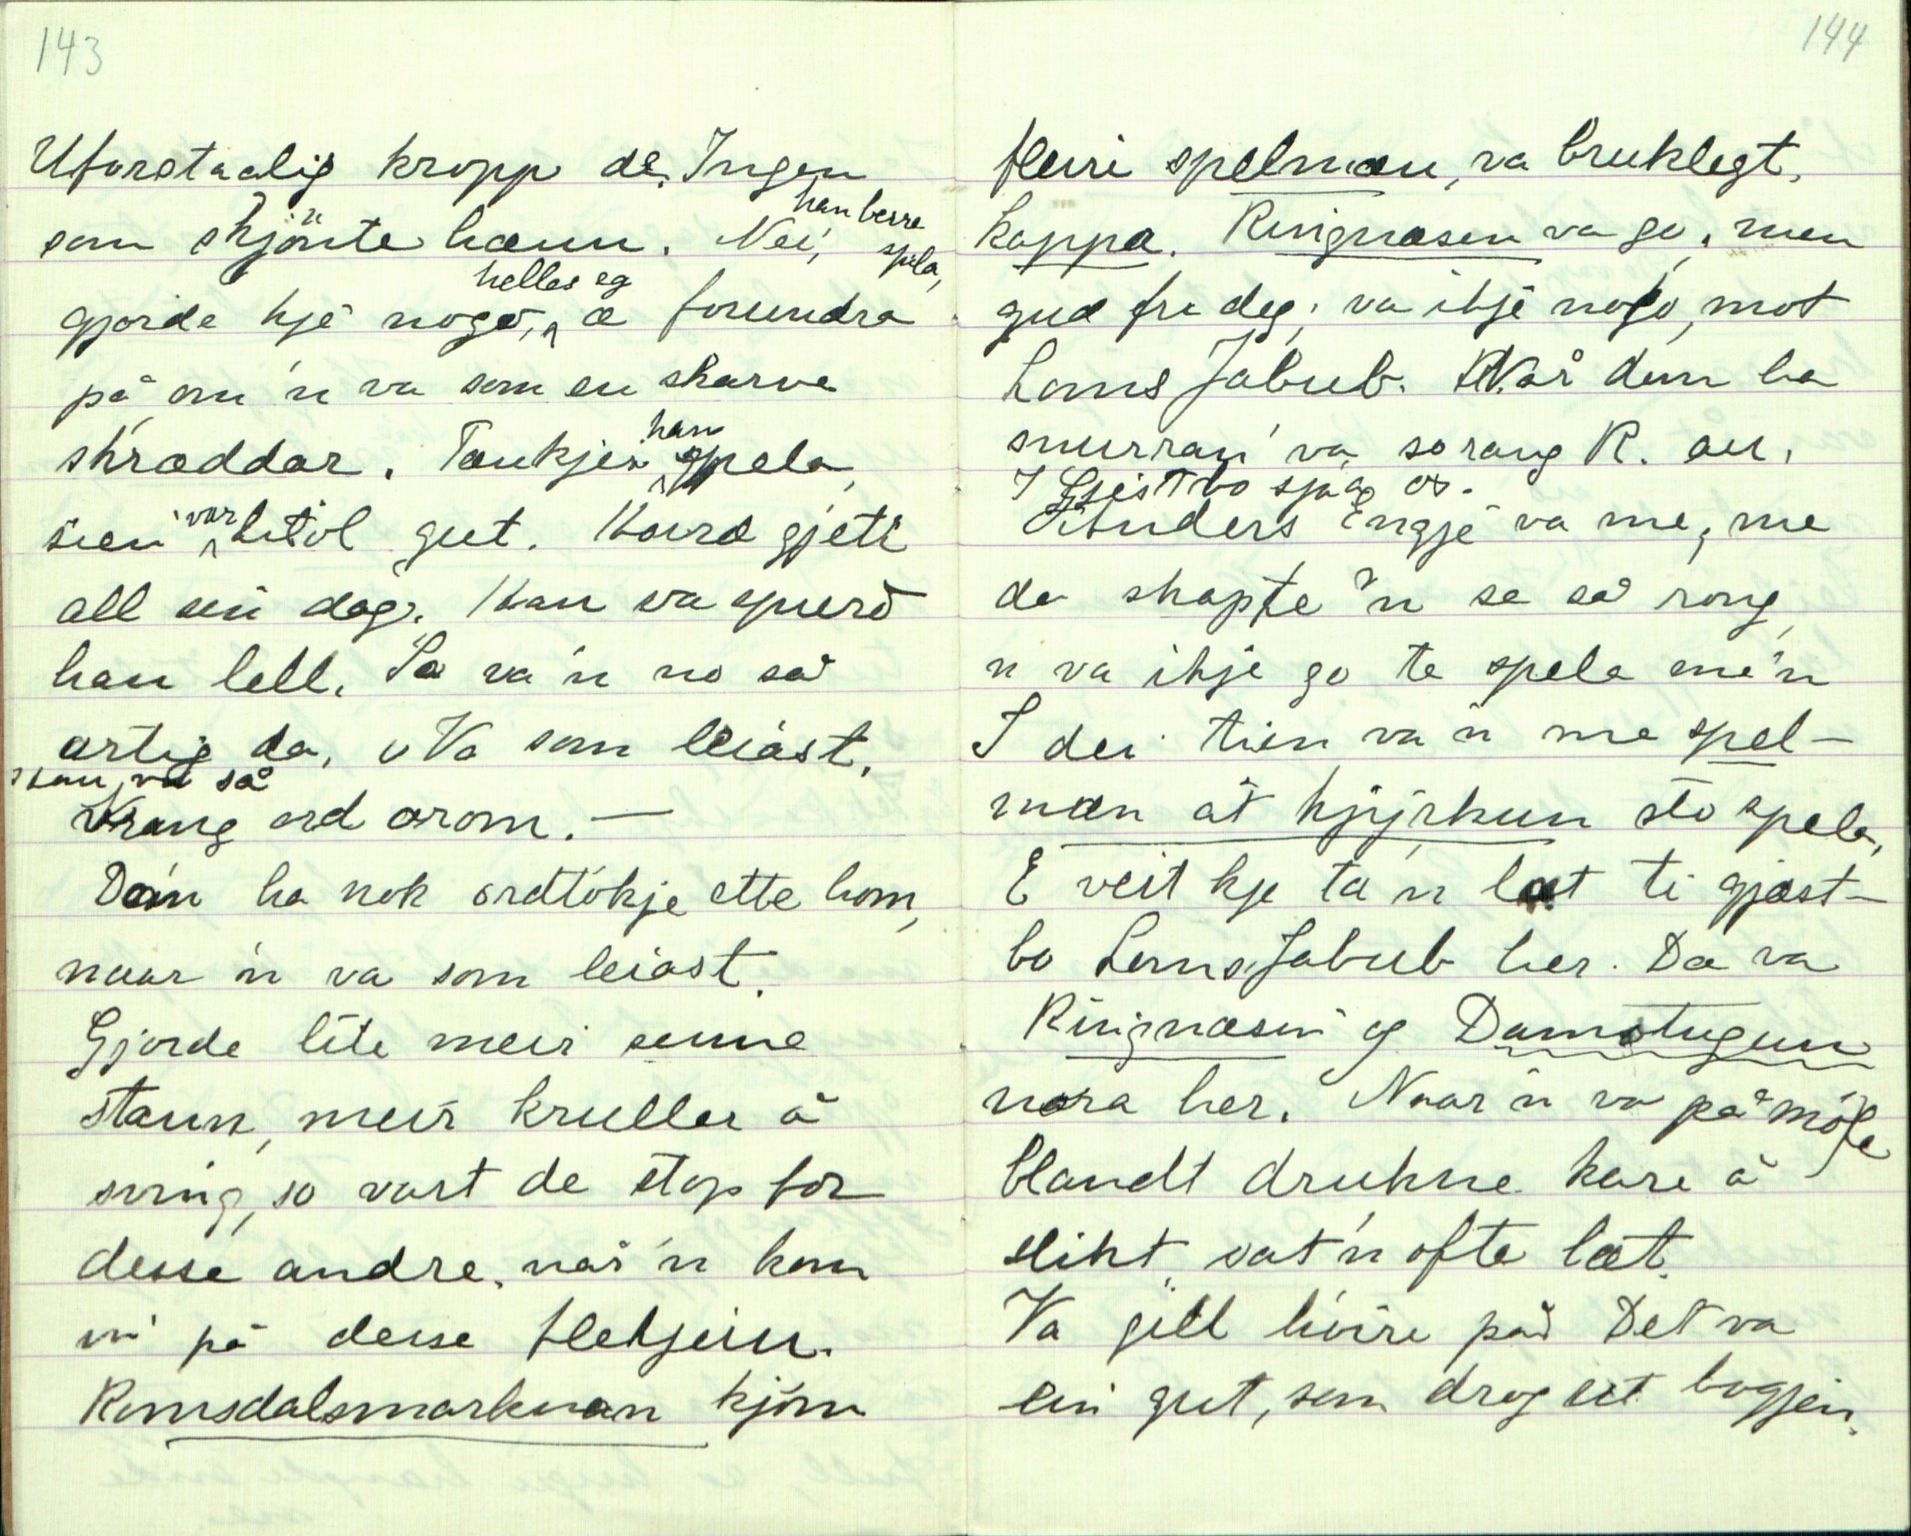 143
Uforstaalig kropp de. Ingen
som skjönte hænn. Nei, han berre spela,
gjorde kje nogo, helles eg æ forundra
på, om 'n va som en skarve
skræddar. Tænkje han spela,
sien var litól gut. Havræ gjeti
all sin dag. Kan va spurd
han lell. Så va'n no så
artig da, Va som leiast.
Han va så
vrang ord arom. —
Då'n ha nok ordtökje ette hom,
naar 'n va som leiast.
Gjorde lite meir senne
staunn, meir kruller å
sving, so vart de stop for
desse andre, når 'n kom
in på desse flekjein.
Romsdalsmarknan kjöm
144
fleiri spelmæn, va bruklegt,
kappa. Ringnæsen va go, men
gud fri deg, va ikje nogo, mot
Loms Jakub. Når dem ha
snurran' va so rang R. au.
I Gjestbo sjåg os.
Anders Engje va me, me
da skapte 'n se så rong,
n va ikje go te spela me'n
I dei tien va'n me spel-
mæn åt kjyrkun sto spela,
E veit kje ta'n læt ti gjæst-
bo Loms Jakub her. Da va
Ringnæsen og Damstugun
nora her. Naar 'n va på möte
blandt drukne kare å
slikt vat'n ofte læt.
Va gill hvire på Det va
ein gut, som drog ut bogjen.